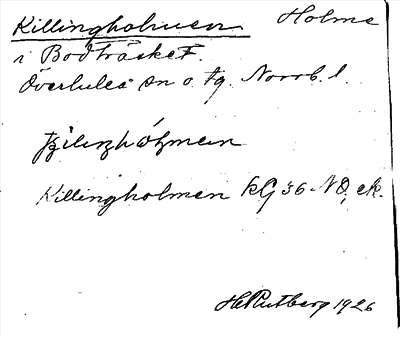 Killingholmen Holme
i Bodträsket.
Överluleå sn o. tg. Norrb. l.
Killingholmen kG 36 NO, ek.
H. Rutberg 1926